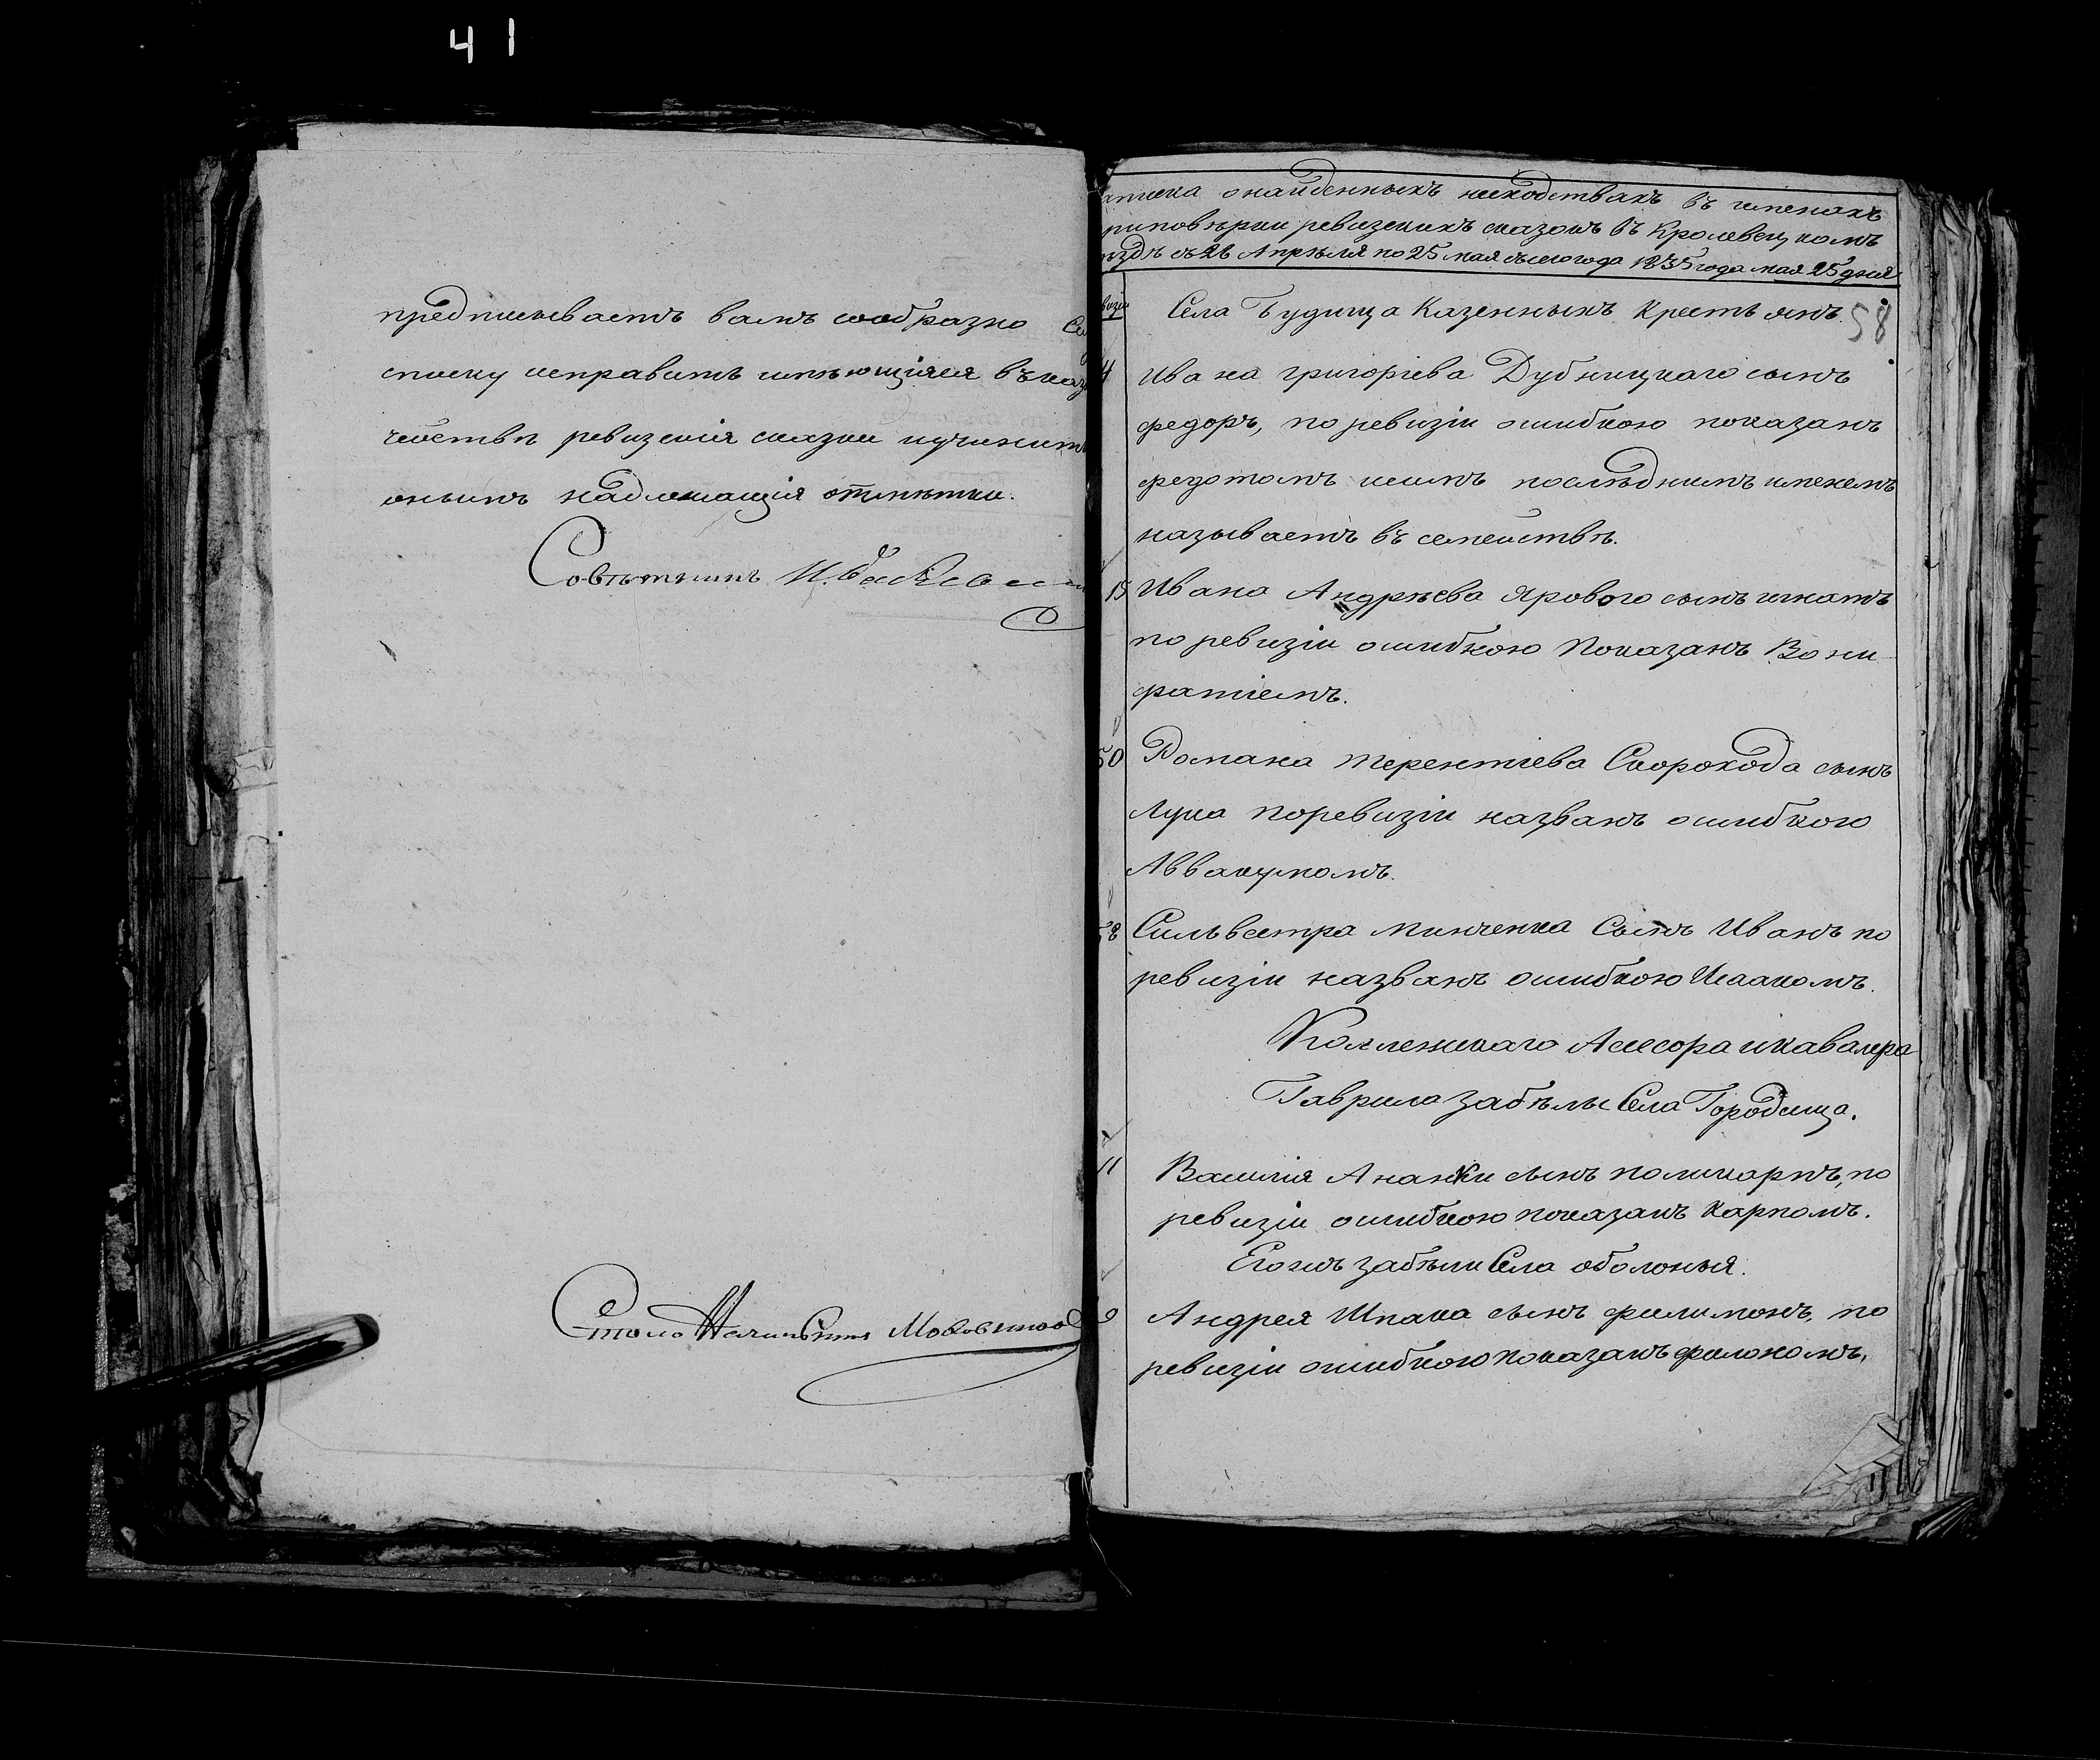 41
предписываетъ вамъ сообразно
списку исправить имѣющіяся въ каз
чействѣ ревизскія сказки и учинить
онымъ надлежащія отмѣтки.
Совѣтникъ
Столоначальникъ
записка о найденныхъ несходствахъ въ именахъ
приповѣрки ревизскихъ сказокъ въ Кролевецкомъ
уѣздѣ съ 26 Апрѣля по 25 мая сего года 1835 года мая 25 дня
58
Села Будища Казенныхъ Крестьянъ
4 Ивана григоріева Дубницкаго сынъ
федоръ, по ревизіи ошибкою показанъ
федотомъ и симъ послѣднимъ именемъ
называетъ въ семействѣ.
15 Ивана Андрѣева Ярового сынъ игнатъ
по ревизіи ошибкою Показанъ Вони
фатіемъ.
50 Романа терентіева Скорохода сынъ
Лука поревизіи названъ ошибкою
Аввакумомъ.
58 Сильвестра минченка Сынъ Иванъ по
ревизіи названъ ошибкою Исаакомъ.
Коллежскаго Асесора и кавалера
Гаврила забѣлы Села Городища.
11 Василія Ананки сынъ поликарпъ, по
ревизіи ошибкою показанъ карпомъ.
Егожъ забѣлы Села оболонья.
9 Андрея Шпака сынъ филимонъ, по
ревизіи ошибкою показанъ филономъ,